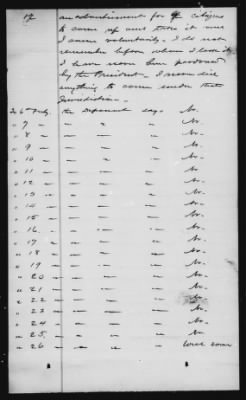 an advertisement for citizens
to come up and take it and
I came voluntarily. I do not
remember before whom I took it.
I have never been pardoned
by the President. I never did
anything to come under that
Jurisdiction.
To 6th Intg. the Deponent say - No.
" 7 — — — — No.
" 8 — — — — No.
" 9 — — — — No.
" 10 — — — — No.
" 11 — — — — No.
" 12 — — — — No.
" 13 — — — — No.
" 14 — — — — No.
" 15 — — — — No.
" 16. — — — — No.
" 17 — — — — No.
" 18 — — — — No.
" 19 — — — — No.
" 20 — — — — No.
" 21 — — — — No.
" 22 — — — — No.
" 23 — — — — No.
" 24 — — — — No.
" 25. — — — — No.
" 26 — " " "